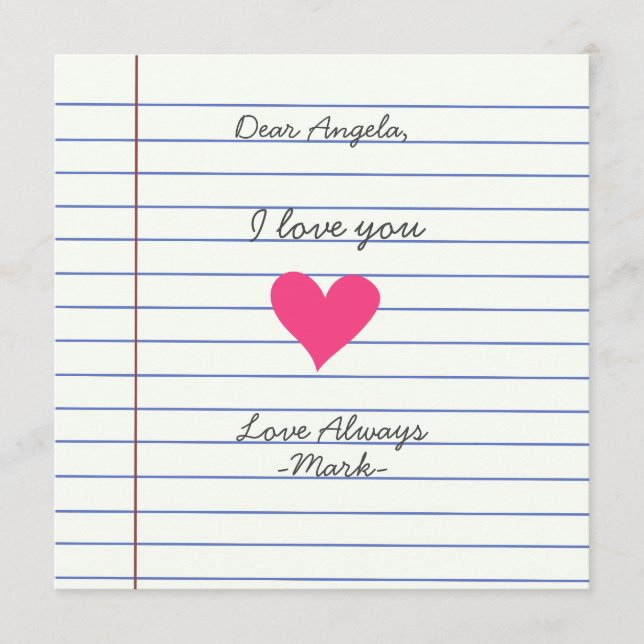 Dear Angela,
I love you
Love Always
-Mark-